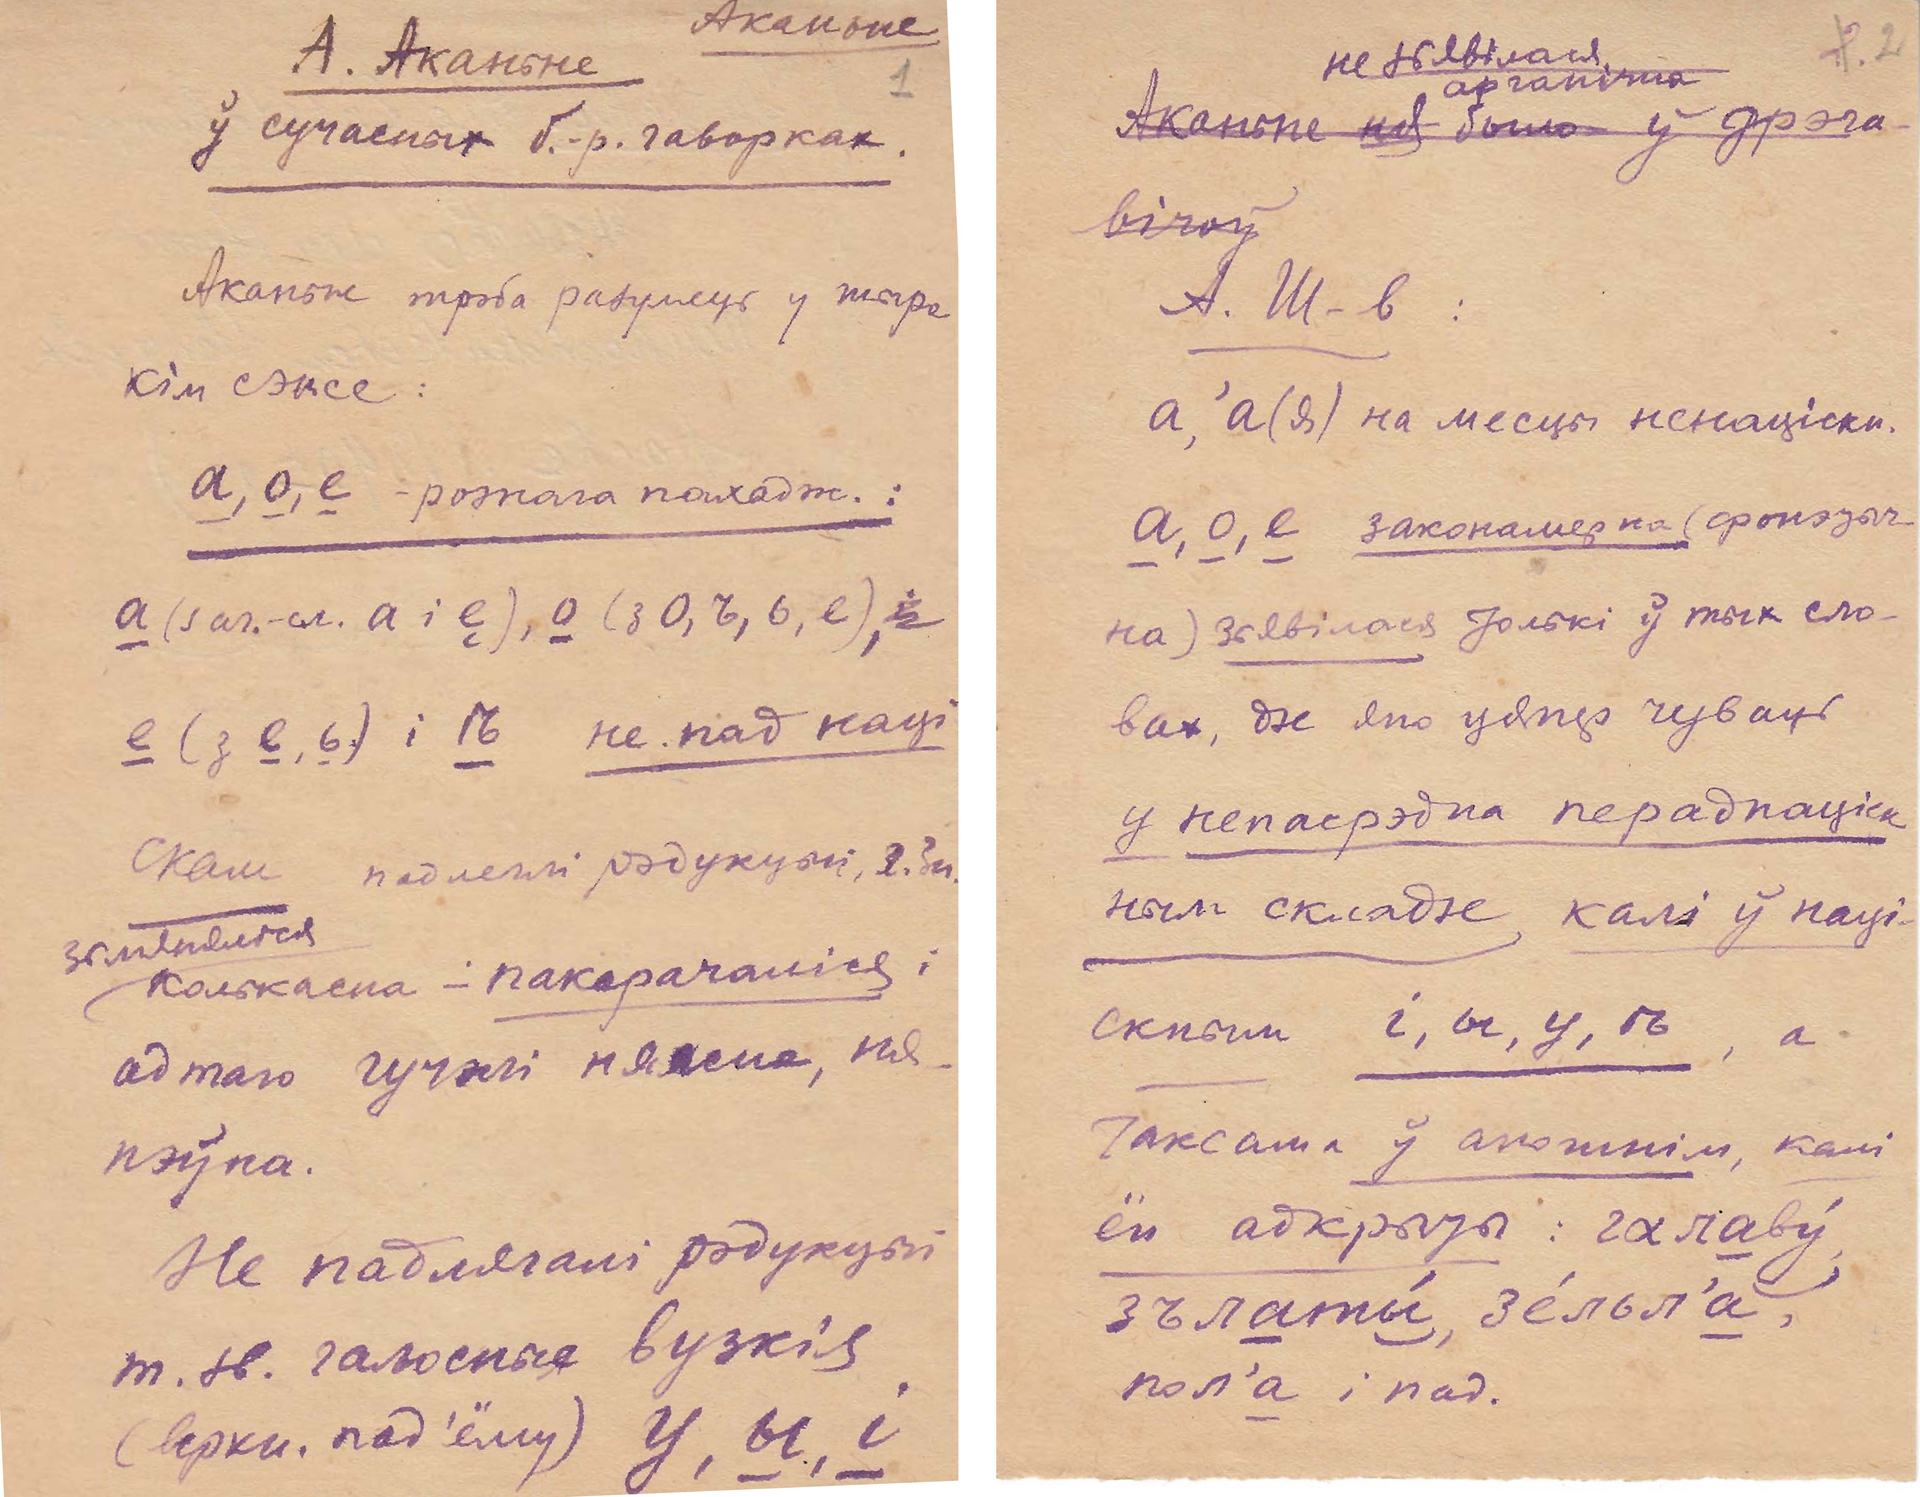 Аканьне
1
А. Аканьне
ў сучасных б.-р. гаворках.
Аканьне трэба разумець у шыро
кім сэнсе:
а, о, е - рознага паходж.:
а (з аг.-сл. а і ę), о (з о, ъ, ь, е),
е (з е, ь) і ѣ не пад наці
скам падлеглі рэдукцыі, г. зн.
зьмяняліся
колькасна - пакарачаліся і
ад таго гучэлі няясна, ня-
пэўна.
Не падлягалі рэдукцыі
т. зв. галосныя вузкія
(верхн. пад'ёму) у, ы, і
2
не зьявілася
арганічна
Аканьне ня было ў дрэга-
вічоў
А. Ш-в:
а, 'а (я) на месцы ненаціскн.
а, о, е закономерна (фонэтыч-
на) зьявілася толькі ў тых сло-
вах, дзе яно цяпер чуваць
у непасрэдна переднаціск
ным складзе, калі ў наці-
скным і, ы, у, ѣ, а
таксама ў апошнім, калі
ён адкрыты: галаву́,
зълаты́, зе́льл'а,
пол'а і пад.